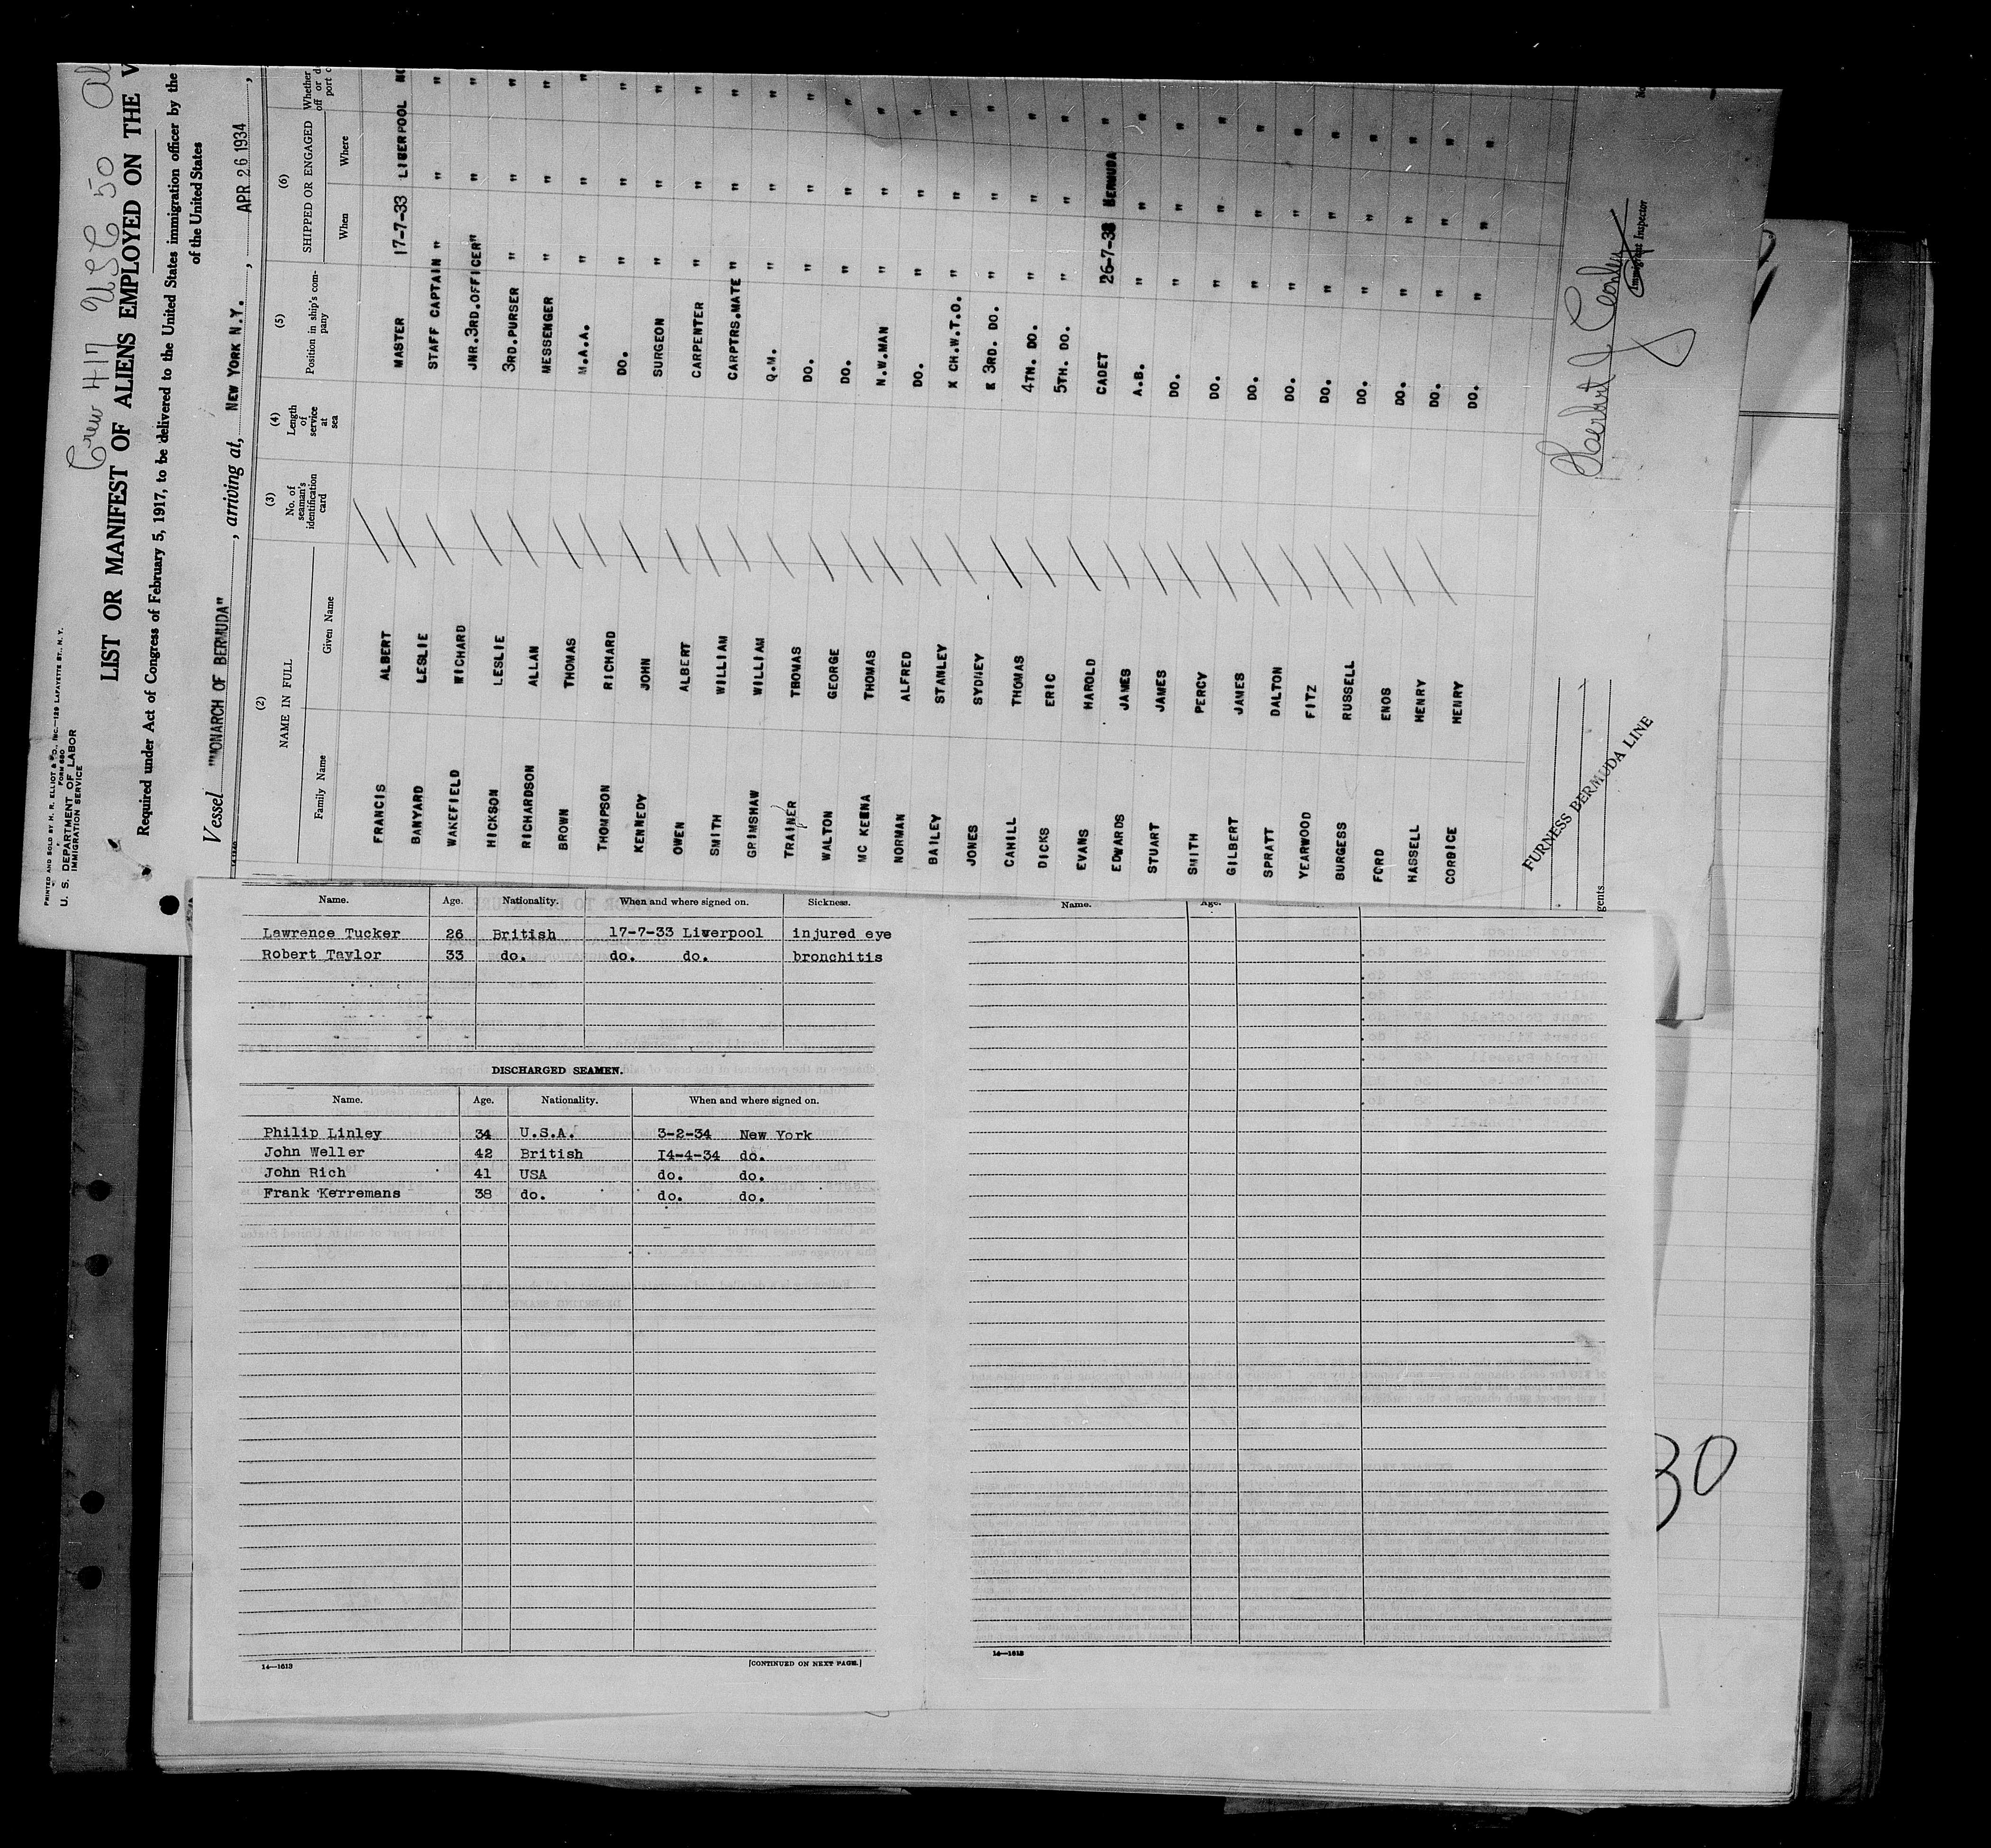 PRINTED AND SOLD BY H. R. ELLIOT & CO., INC.—129 LAFAYETTE ST., N. Y.
FORM 680
U. S. DEPARTMENT OF LABOR
IMMIGRATION SERVICE
Crew 417 USC 50
LIST OR MANIFEST OF ALIENS EMPLOYED ON THE
Required under Act of Congress of February 5, 1917, to be delivered to the United States immigration officer by the
of the United States
Vessel "MONARCH OF BERMUDA", arriving at, NEW YORK N.Y., APR 26 1934,
(2) (3) (4) (5) (6)
NAME IN FULL No. of seaman's identification card Length of service at sea Position in ship's company SHIPPED OR ENGAGED Whether
Family Name Given Name When Where
FRANCIS ALBERT MASTER 17-7-33 LIVERPOOL
BANYARD LESLIE STAFF CAPTAIN " " "
WAKEFIELD WICHARD JNR.3RD.OFFICER" " "
HICKSON LESLIE 3RD.PURSER " " "
RICHARDSON ALLAN MESSENGER " " "
BROWN THOMAS M.A.A. " " "
THOMPSON RICHARD DO. " " "
KENNEDY JOHN SURGEON " " "
OWEN ALBERT CARPENTER " " "
SMITH WILLIAM CARPTRS.MATE " " "
GRIMSHAW WILLIAM Q.M. " " "
TRAINER THOMAS DO. " " "
WALTON GEORGE DO. " " "
MC KENNA THOMAS N.W.MAN " " "
NORMAN ALFRED DO. " " "
BAILEY STANLEY X CH.W.T.O. " " "
JONES SYDNEY 3RD. DO. " " "
CAHILL THOMAS 4TH. DO. " " "
DICKS ERIC 5TH. DO. " " "
EVANS HAROLD CADET 26-7-33 BERMUDA "
EDWARDS JAMES A.B. " " "
STUART JAMES DO. " " "
SMITH PERCY DO. " " "
GILBERT JAMES DO. " " "
SPRATT DALTON DO. " " "
YEARWOOD FITZ DO. " " "
BURGESS RUSSELL DO. " " "
FORD ENOS DO. " " "
HASSELL HENRY DO. " " "
CORBICE HENRY DO. " " "
FURNESS BERMUDA LINE
Immigrant Inspector
gents.
Name. Age. Nationality. When and where signed on. Sickness.
Lawrence Tucker 26 British 17-7-33 Liverpool injured eye
Robert Taylor 33 do. do. do. bronchitis
DISCHARGED SEAMEN.
Name. Age. Nationality. When and where signed on.
Philip Linley 34 U.S.A. 3-2-34 New York
John Weller 42 British I4-4-34 do.
John Rich 41 USA do. do.
Frank Kerremans 38 do. do. do.
14—1613 [CONTINUED ON NEXT PAGE.]
Name. Age.
14—1613
30